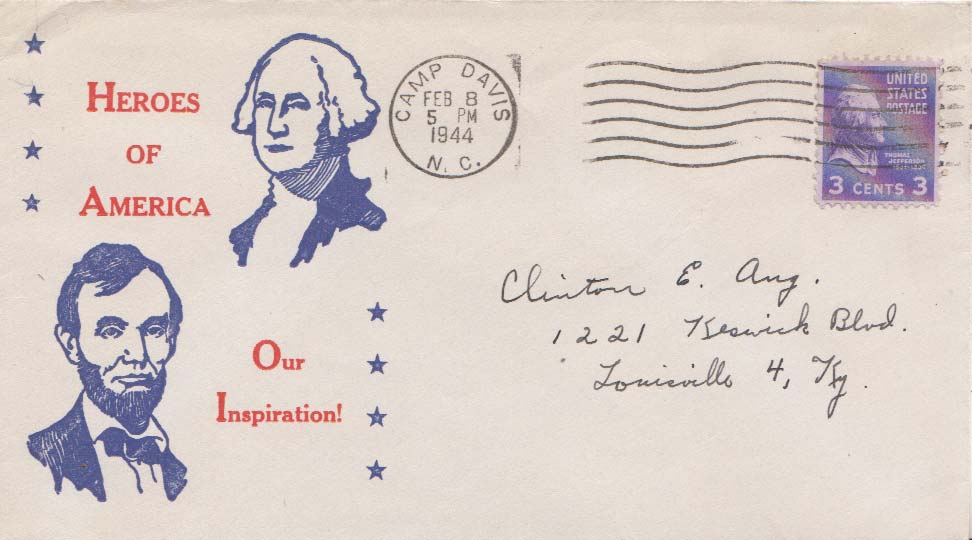 HEROES
OF
AMERICA
Our
Inspiration!
CAMP DAVIS
FEB 8
5 PM
1944
N. C.
UNITED
STATES
POSTAGE
THOMAS
JEFFERSON
3 CENTS 3
Clinton E. Aug.
1221 Keswick Blvd.
Louisville 4, Ky.